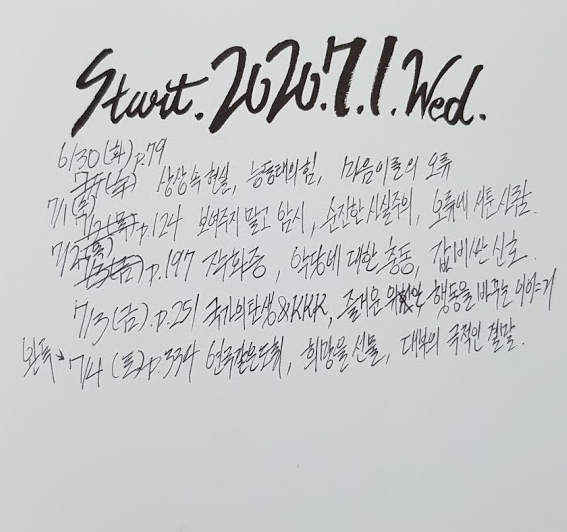 Start. 2020.7.1. Wed.
6/30(화)p.79
상상 속 현실, 능동태의 힘, 마음이론의 오류
7/1(수) p.124 보여주지 말고 암시, 순진한 사실주의, 오류에 서툰 사람.
7/2(목) p.197 작화증, 악당에 대한 충동, 값비싼 신호.
7/3(금).p.251 국가의탄생&KKK, 즐거운 위안 행동을 바꾸는 이야기
완독→ 7/4 (토)p.334 연극같은도회, 희망을 선물, 대부의 극적인 결말.